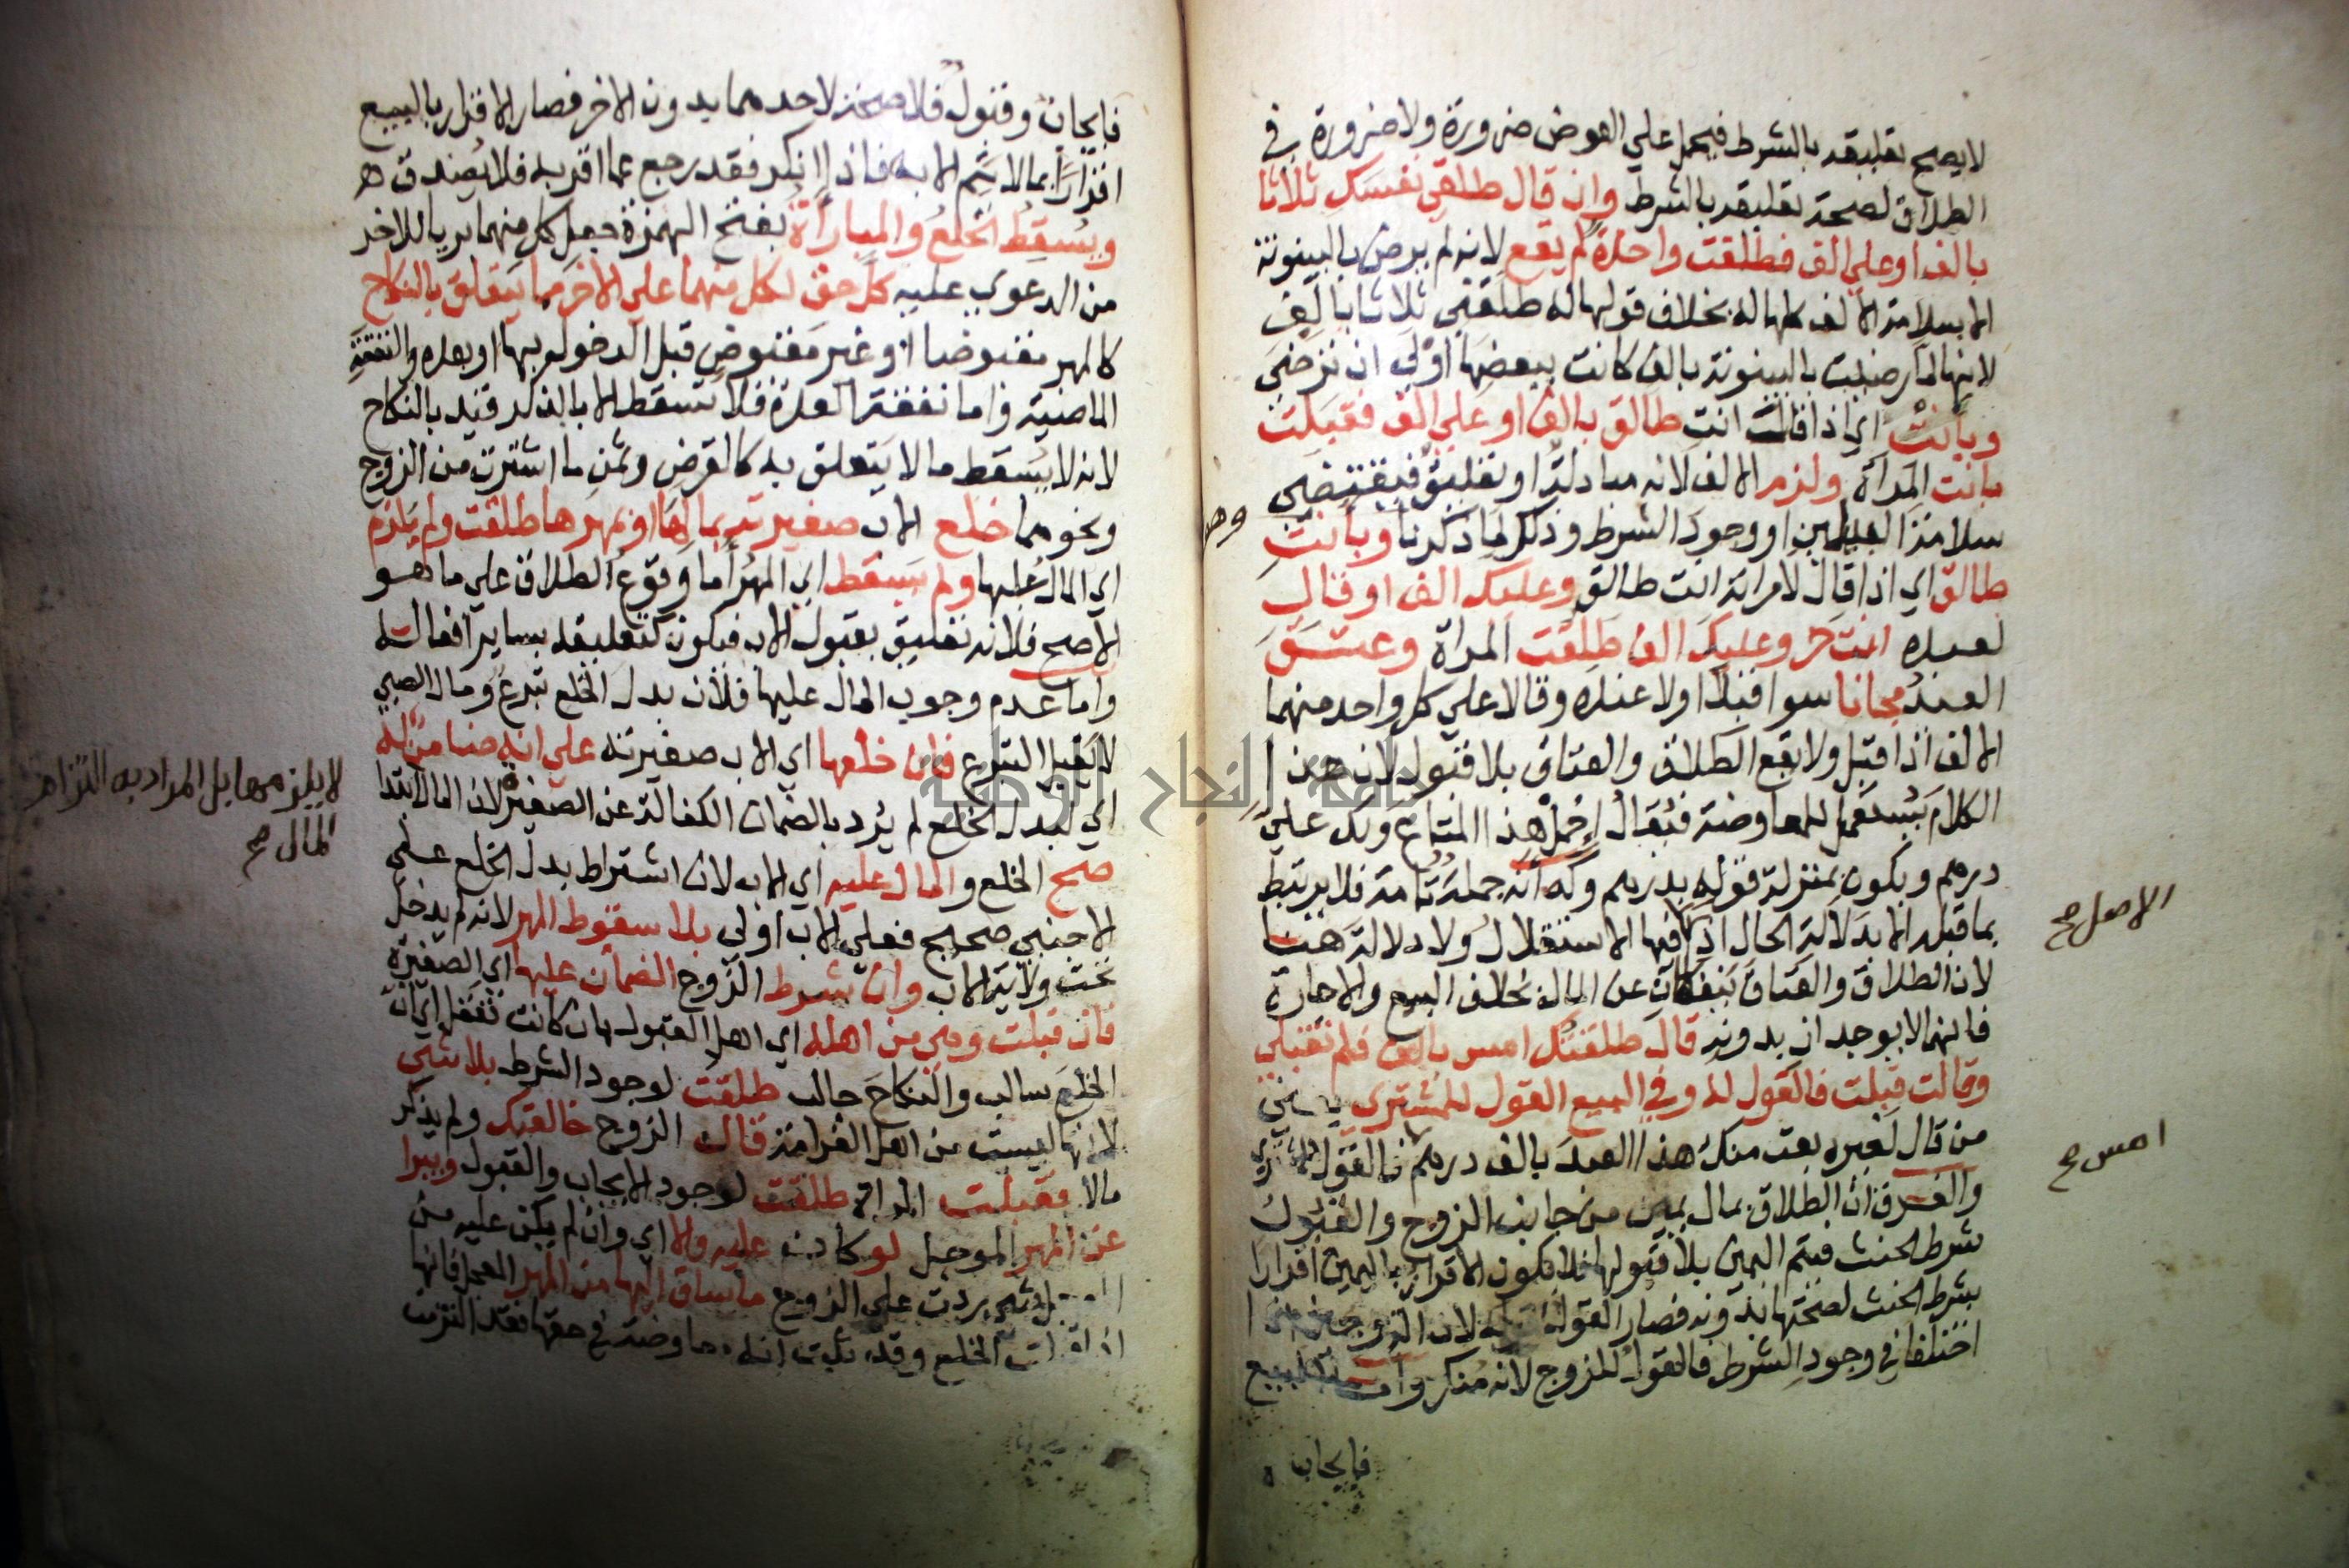 لا يصح تعليقه بالشرط فيحمل علي العوض ضرورة ولا ضرورة في
الطلاق لصحة تعليقه بالشرط وان قال طلقي نفسك ثلاثا
بالف او علي الف فطلقت واحدة لم يقع لانه لم يرض بالبينونة
الا بسلامة الالف كلها له بخلاف قولها له طلقني ثلاثا بالف
لانها لما رضيت بالبينونة بالف كانت ببعضها اولي ان ترضي
وبانت اي اذا قال انت طالق بالف او علي الف فقبلت
بانت المراة ولزم الالف لانه مبادلة او تعليق فيقتضي
سلامة البدلين او وجود الشرط وذلك لما ذكرنا وبانت
طالق اي اذا قال لامراته انت طالق وعليك الف او قال
لعبده انت حر وعليك الف طلقت المراة وعتق
العبد مجانا سوا قبلا او لا عنده وقالا علي كل واحد منهما
الالف اذا قبل ولا يقع الطلاق والعتاق بلا قبول لان هذا
الكلام يستعمل للمعاوضة فيقال احمل هذا المتاع ولك علي
درهم ويكون بمنزلة قوله بدرهم وله انه جملة تامة فلا يرتبط
بما قبله الا بدلالة الحال اذ فيها الاستقلال ولا دلالة هنا
الاصل صح
لان الطلاق والعتاق ينفكان عن المال بخلاف البيع والاجارة
فانهما لا يوجدان بدونه قال طلقتك امس بالف فلم تقبلي
وقالت قبلت فالقول له وفي البيع القول للمشتري يعني
من قال لغيره بعت منك هذا العبد بالف درهم فالقول للمشتري
امس صح
والفرق ان الطلاق بمال يمين من جانب الزوج والقبول
شرط الحنث فيتم اليمين بلا قبولها فلا يكون الاقرار باليمين اقرارا
بشرط الحنث لصحتها بدونه فصار القول لان الزوجين
اختلفا في وجود الشرط فالقول للزوج لانه منكر واما البيع
فايجاب
فايجاب وقبول فلا صحة لاحدهما بدون الاخر فصار الاقرار بالبيع
اقرارا بما لا يتم الا به فاذا انكر فقد رجع عما اقر به فلا يصدق ه
ويسقط الخلع والمباراة بفتح الهمزة جعل كل منهما بريا للاخر
من الدعوي عليه كل حق لكل منهما علي الاخر مما يتعلق بالنكاح
كالمهر مقبوضا او غير مقبوض قبل الدخول بها او بعده والنفقة
الماضية واما نفقة العدة فلا تسقط الا بالذكر قيد بالنكاح
لانه لا يسقط ما لا يتعلق به كالقرض وثمن ما اشترت من الزوج
ونحوهما خلع الاب صغيرته بمالها او مهرها طلقت ولم يلزم
اي المال عليها ولم يسقط اي المهر اما وقوع الطلاق علي ما هو
الاصح فلانه تعليق بقبول الاب فيكون كتعليقه بساير افعاله
واما عدم وجوب المال عليها فلان بدل الخلع تبرع ومال الصبي
لا يقبل التبرع فان خلعها اي الاب صغيرته علي انه ضامن له
اي لبدل الخلع لم يرد بالضمان الكفالة عن الصغيرة لان المال ابتدا
لا يلزمها بل المراد به التزام
المال صح
صح الخلع والمال عليه اي الاب لان اشتراط بدل الخلع علي
الاجنبي صحيح فعلي الاب اولي بلا سقوط المهر لانه لم يدخل
تحت ولاية الاب وان شرط الزوج الضمان عليها اي الصغيرة
فان قبلت وهي من اهله اي اهل القبول بان كانت تعقل اي ان
الخلع سالب والنكاح جالب طلقت لوجود الشرط بلا شي
لانها ليست من اهل الغرامة قال الزوج خالعتك ولم يذكر
مالا فقبلت المراة طلقت لوجود الايجاب والقبول ويبرا
عن المهر الموجل لو كان عليه والا اي وان لم يكن عليه من
شي ردت علي الزوج ما ساق اليها من المهر المعجل فانها
الخلع وقد ثبت انه معاوضة في حقها فقد التزمت